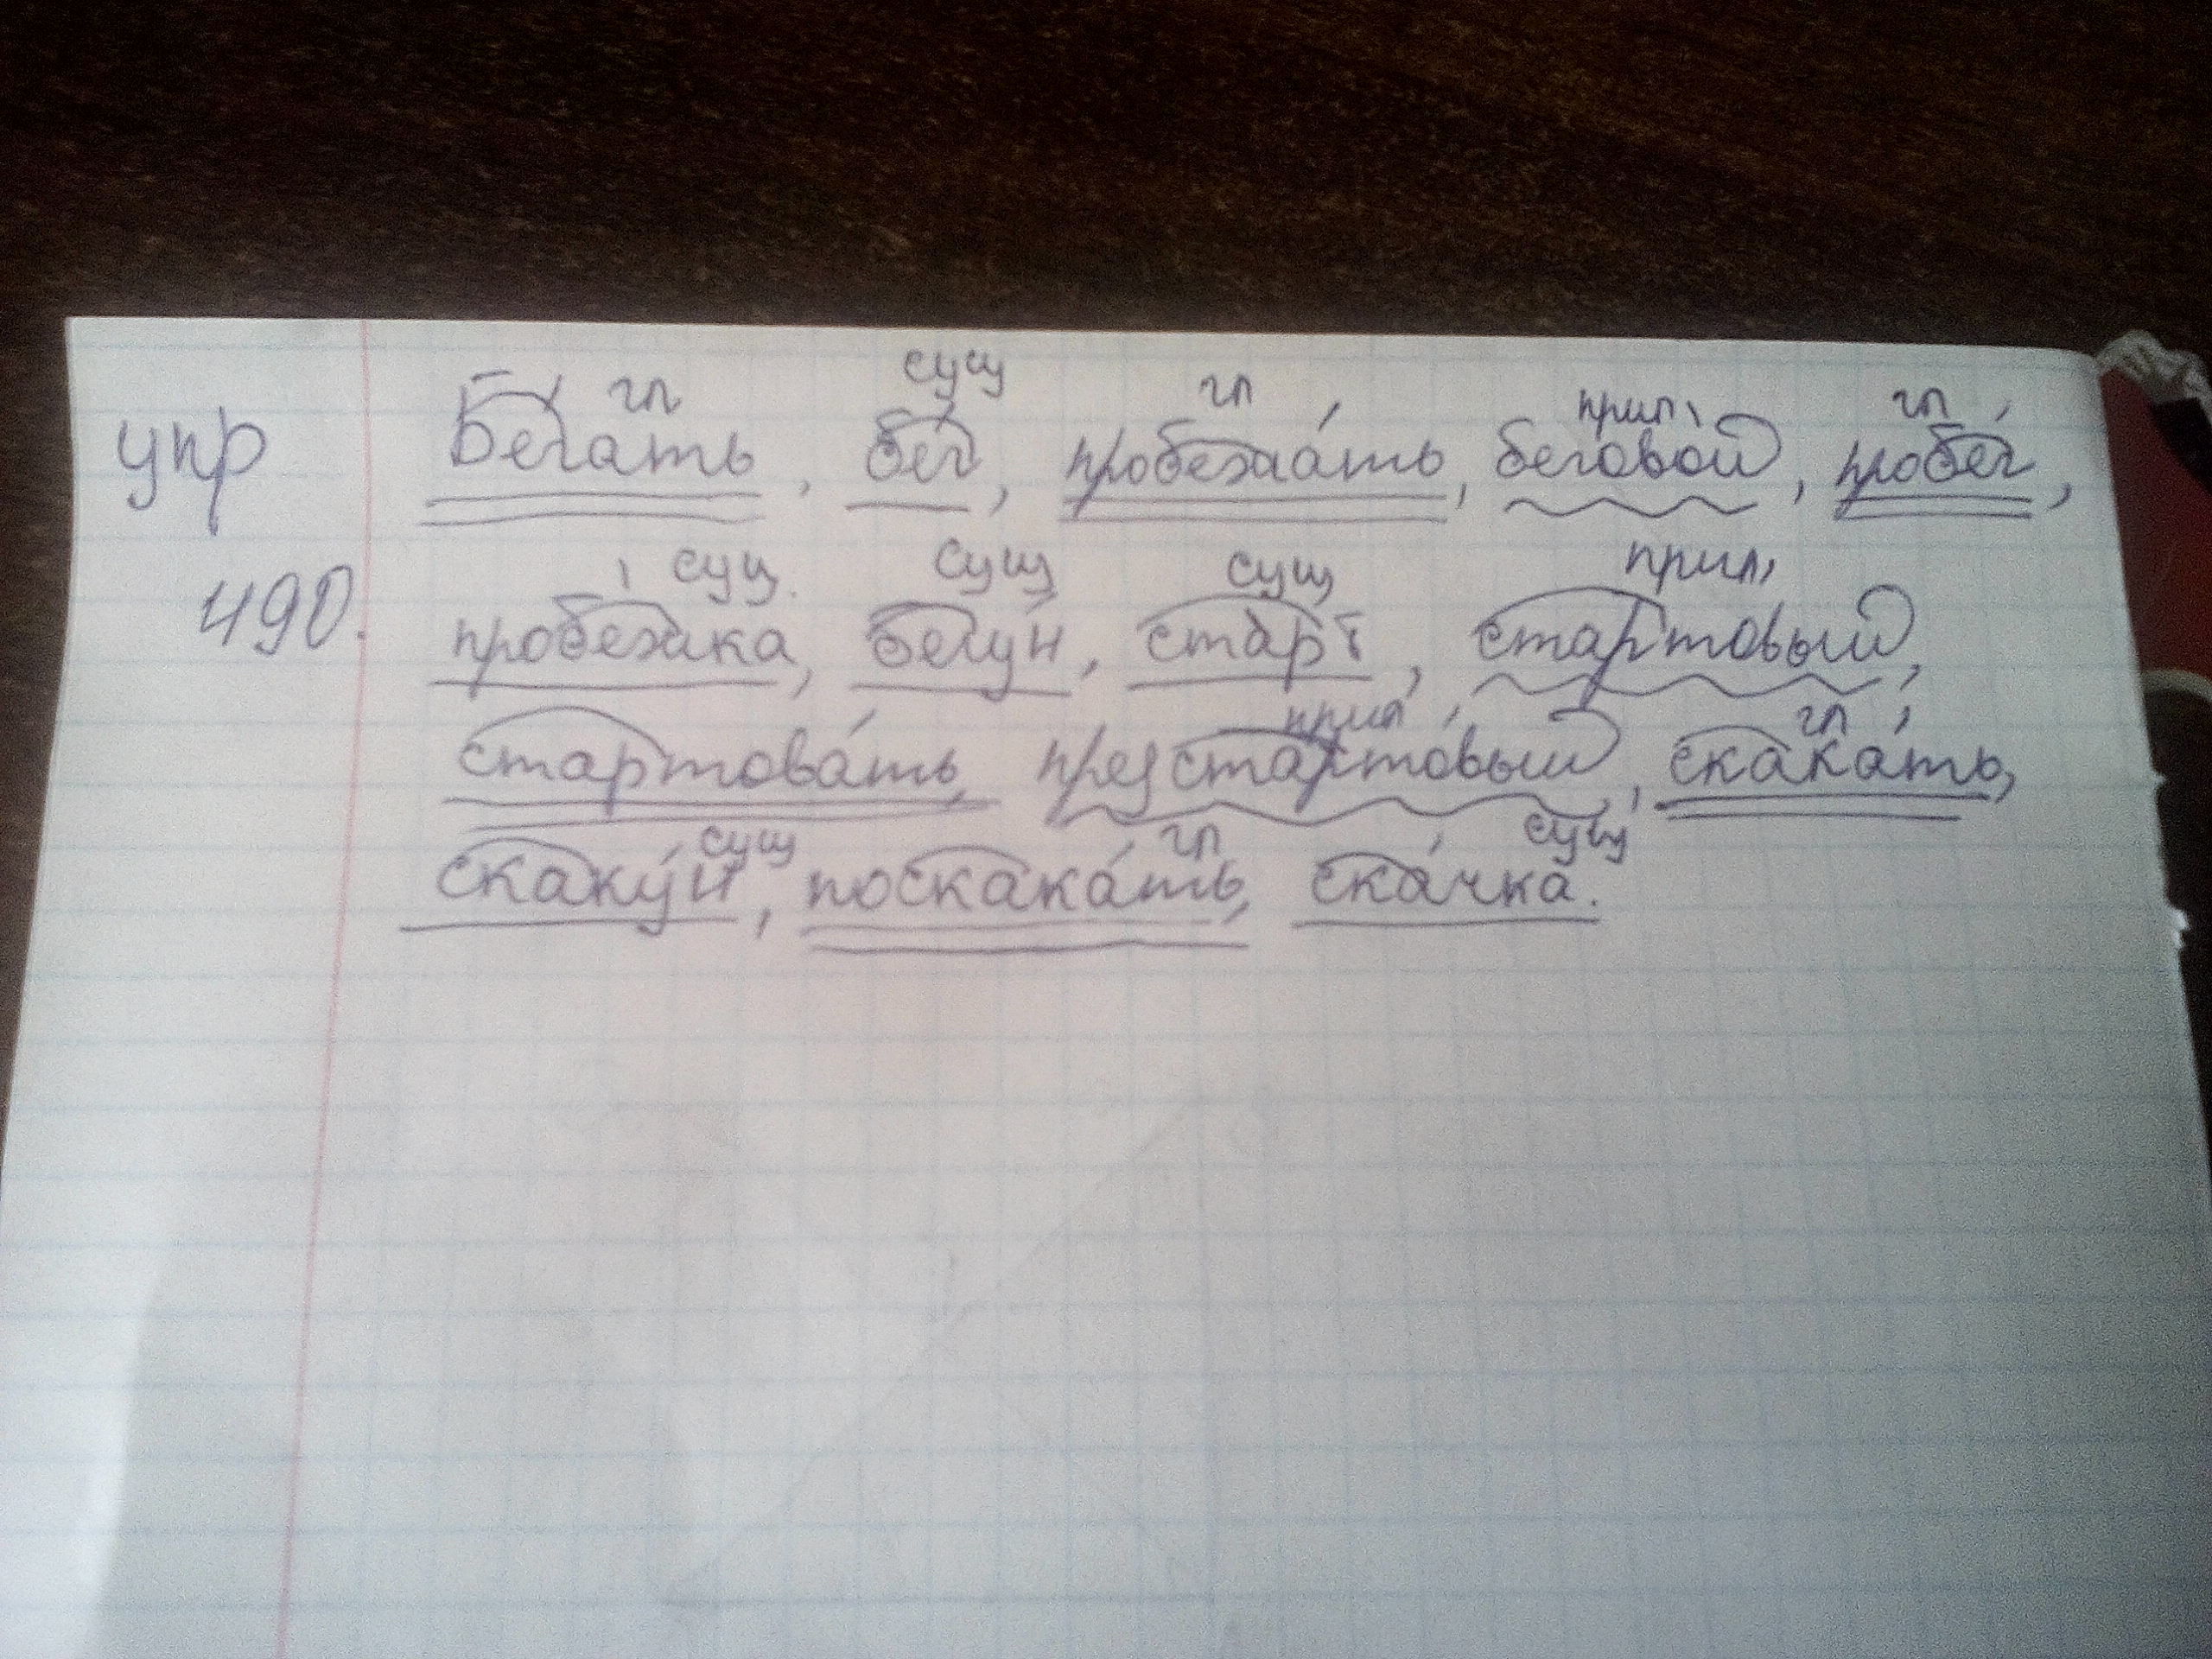 гл сущ гл прил гл
упр Бе́гать, бег, пробежа́ть, беговой, пробе́г,
сущ. сущ сущ прил,
490. пробежка, бегу́н, старт, стартовый,
прил гл
стартова́ть, предстартовый, скака́ть,
сущ гл сущ
скаку́н, поскака́ть, ска́чка.